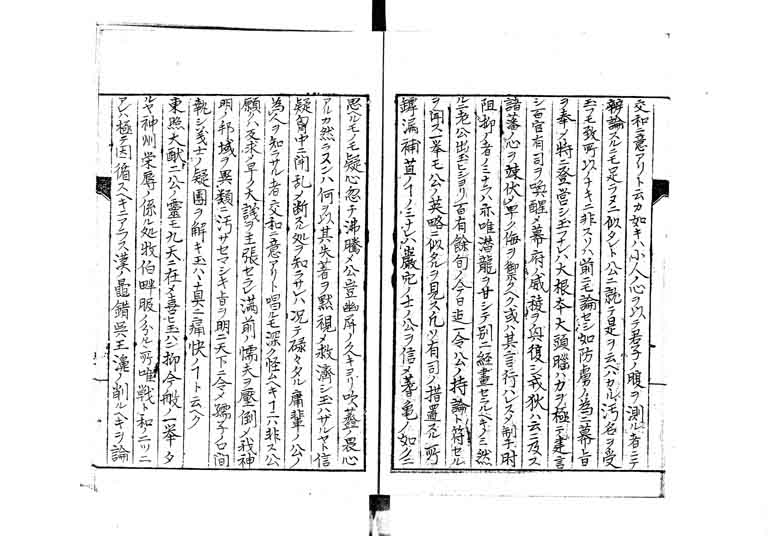 交和ニ意アリト云カ如キハ小人ノ心ヲ以テ君子ノ腹ヲ測ル者ニテ
辨論スルモ足ラヌニ似タレト公ニ就テ是ヲ云ハヽカヽル汚名ヲ受
玉フモ致所以ナキニ非ス前ニモ論セシ如防虜ノ為ニ幕旨
ヲ奉メ特ニ登営シ玉フナレハ大根本大頭脳ハ力ヲ極テ建言
シ百官有司ヲ喚醒メ幕府ノ威稜ヲ興復シ戎狄ハ云ニ及ス
諸藩ノ心ヲ竦伏シ早ク侮ヲ禦クヘク或ハ其言行ハレス掣肘
阻抑ノ者ノミナラハ亦唯潜龍ヲ甘シテ別ニ経畫セラルヘキノミ然
ルニ老公出玉ヒショリ百有餘旬ノ今日迄一令ノ公ノ持論ト符セル
ヲ聞ス一挙モ公ノ英略ニ似タルヲ見ス凡ソ有司ノ措置スル所
罅漏補苴ノ１ノミニテ六巖穴ノ士ノ公ヲ信メ蓍亀ノ如クニ
思ヘルモノモ疑心忽チ沸騰メ公豈幽屏ノクキヨリ吹虀ノ畏心
アルカ然ラスンハ何ヲ以其失著ヲ黙視メ救濟シ玉ハサルヤト信
疑胷中ニ閧乱メ断スル処ヲ知ラサレハ况テ碌々タル庸輩ノ公ノ
為人ヲ知ラサル者交和ニ意アリト唱ルモ深ク怪ムヘキ１ニハ非ス公
願クハ反求メ早ク大議ヲ主張セラレ満前ノ懦夫ヲ壓倒メ我神
明ノ邦域ヲ異類ニ汚サセマシキ旨ヲ明ニ天下ニ令メ孺子ノ口
執シ義士ノ疑團ヲ解キ玉ハヽ真ニ痛快ノ１ト云ヘク
東照大猷二公ノ靈モ九天ニ在メ喜ヒ玉ハン抑今般ノ一挙タ
ルヤ神州榮辱ノ係ル処牧伯畔服ノ分ル所唯戦ト和ノ二ツニ
アレハ極テ因循スヘキニアラス漢ノ鼂錯呉王濞ノ削ルヘキヲ論